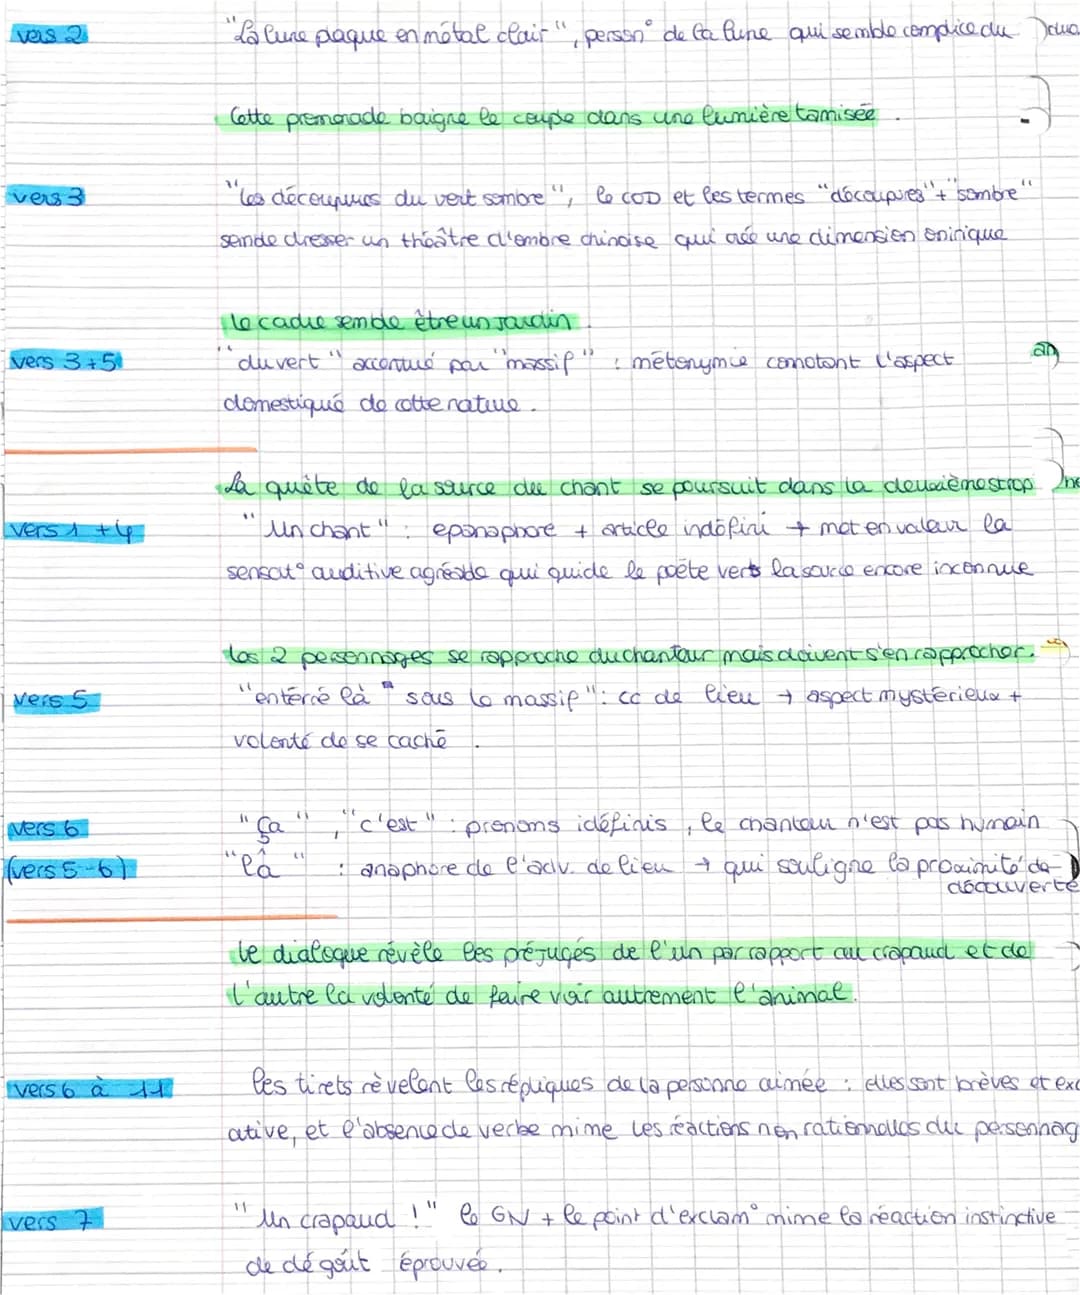 vers 2 "La lune plaque en métal clair", person° de la lune qui semble complice du duo
Cette promenade baigne le couple dans une lumière tamisée.
vers 3 "Les découpures du vert sombre", le COD et les termes "découpures" + "sombre"
semble dresser un théâtre d'ombre chinoise qui crée une dimension onirique
Le cadre semble être un jardin.
vers 3+5 "du vert" accentué par "massif" : métonymie connotant l'aspect
domestiqué de cette nature.
La quête de la source du chant se poursuit dans la deuxième strop he
vers 1 + 4 "Un chant" : epanaphore + article indéfini → met en valeur la
sensat° auditive agréable qui guide le poète vers la source encore inconnue
Les 2 personnages se rapproche du chanteur mais doivent s'en rapprocher.
vers 5 "enterré là" "sous le massif" : cc de lieu → aspect mystérieux +
volonté de se caché.
vers 6 "Ça", "c'est" : pronoms idéfinis, le chanteur n'est pas humain
(vers 5-6) "là" : anaphore de l'adv. de lieu → qui souligne la proximité de
découverte
Le dialogue révèle les préjugés de l'un par rapport au crapaud et de
l'autre la volonté de faire voir autrement l'animal.
vers 6 à 11 les tirets rèvelent les répliques de la personne aimée : elles sont brèves et exc
ative, et l'absence de verbe mime les réactions non rationnelles du personnag
vers 7 "Un crapaud !" le GN + le point d'exclam° mime la réaction instinctive
de dégoût éprouvée.